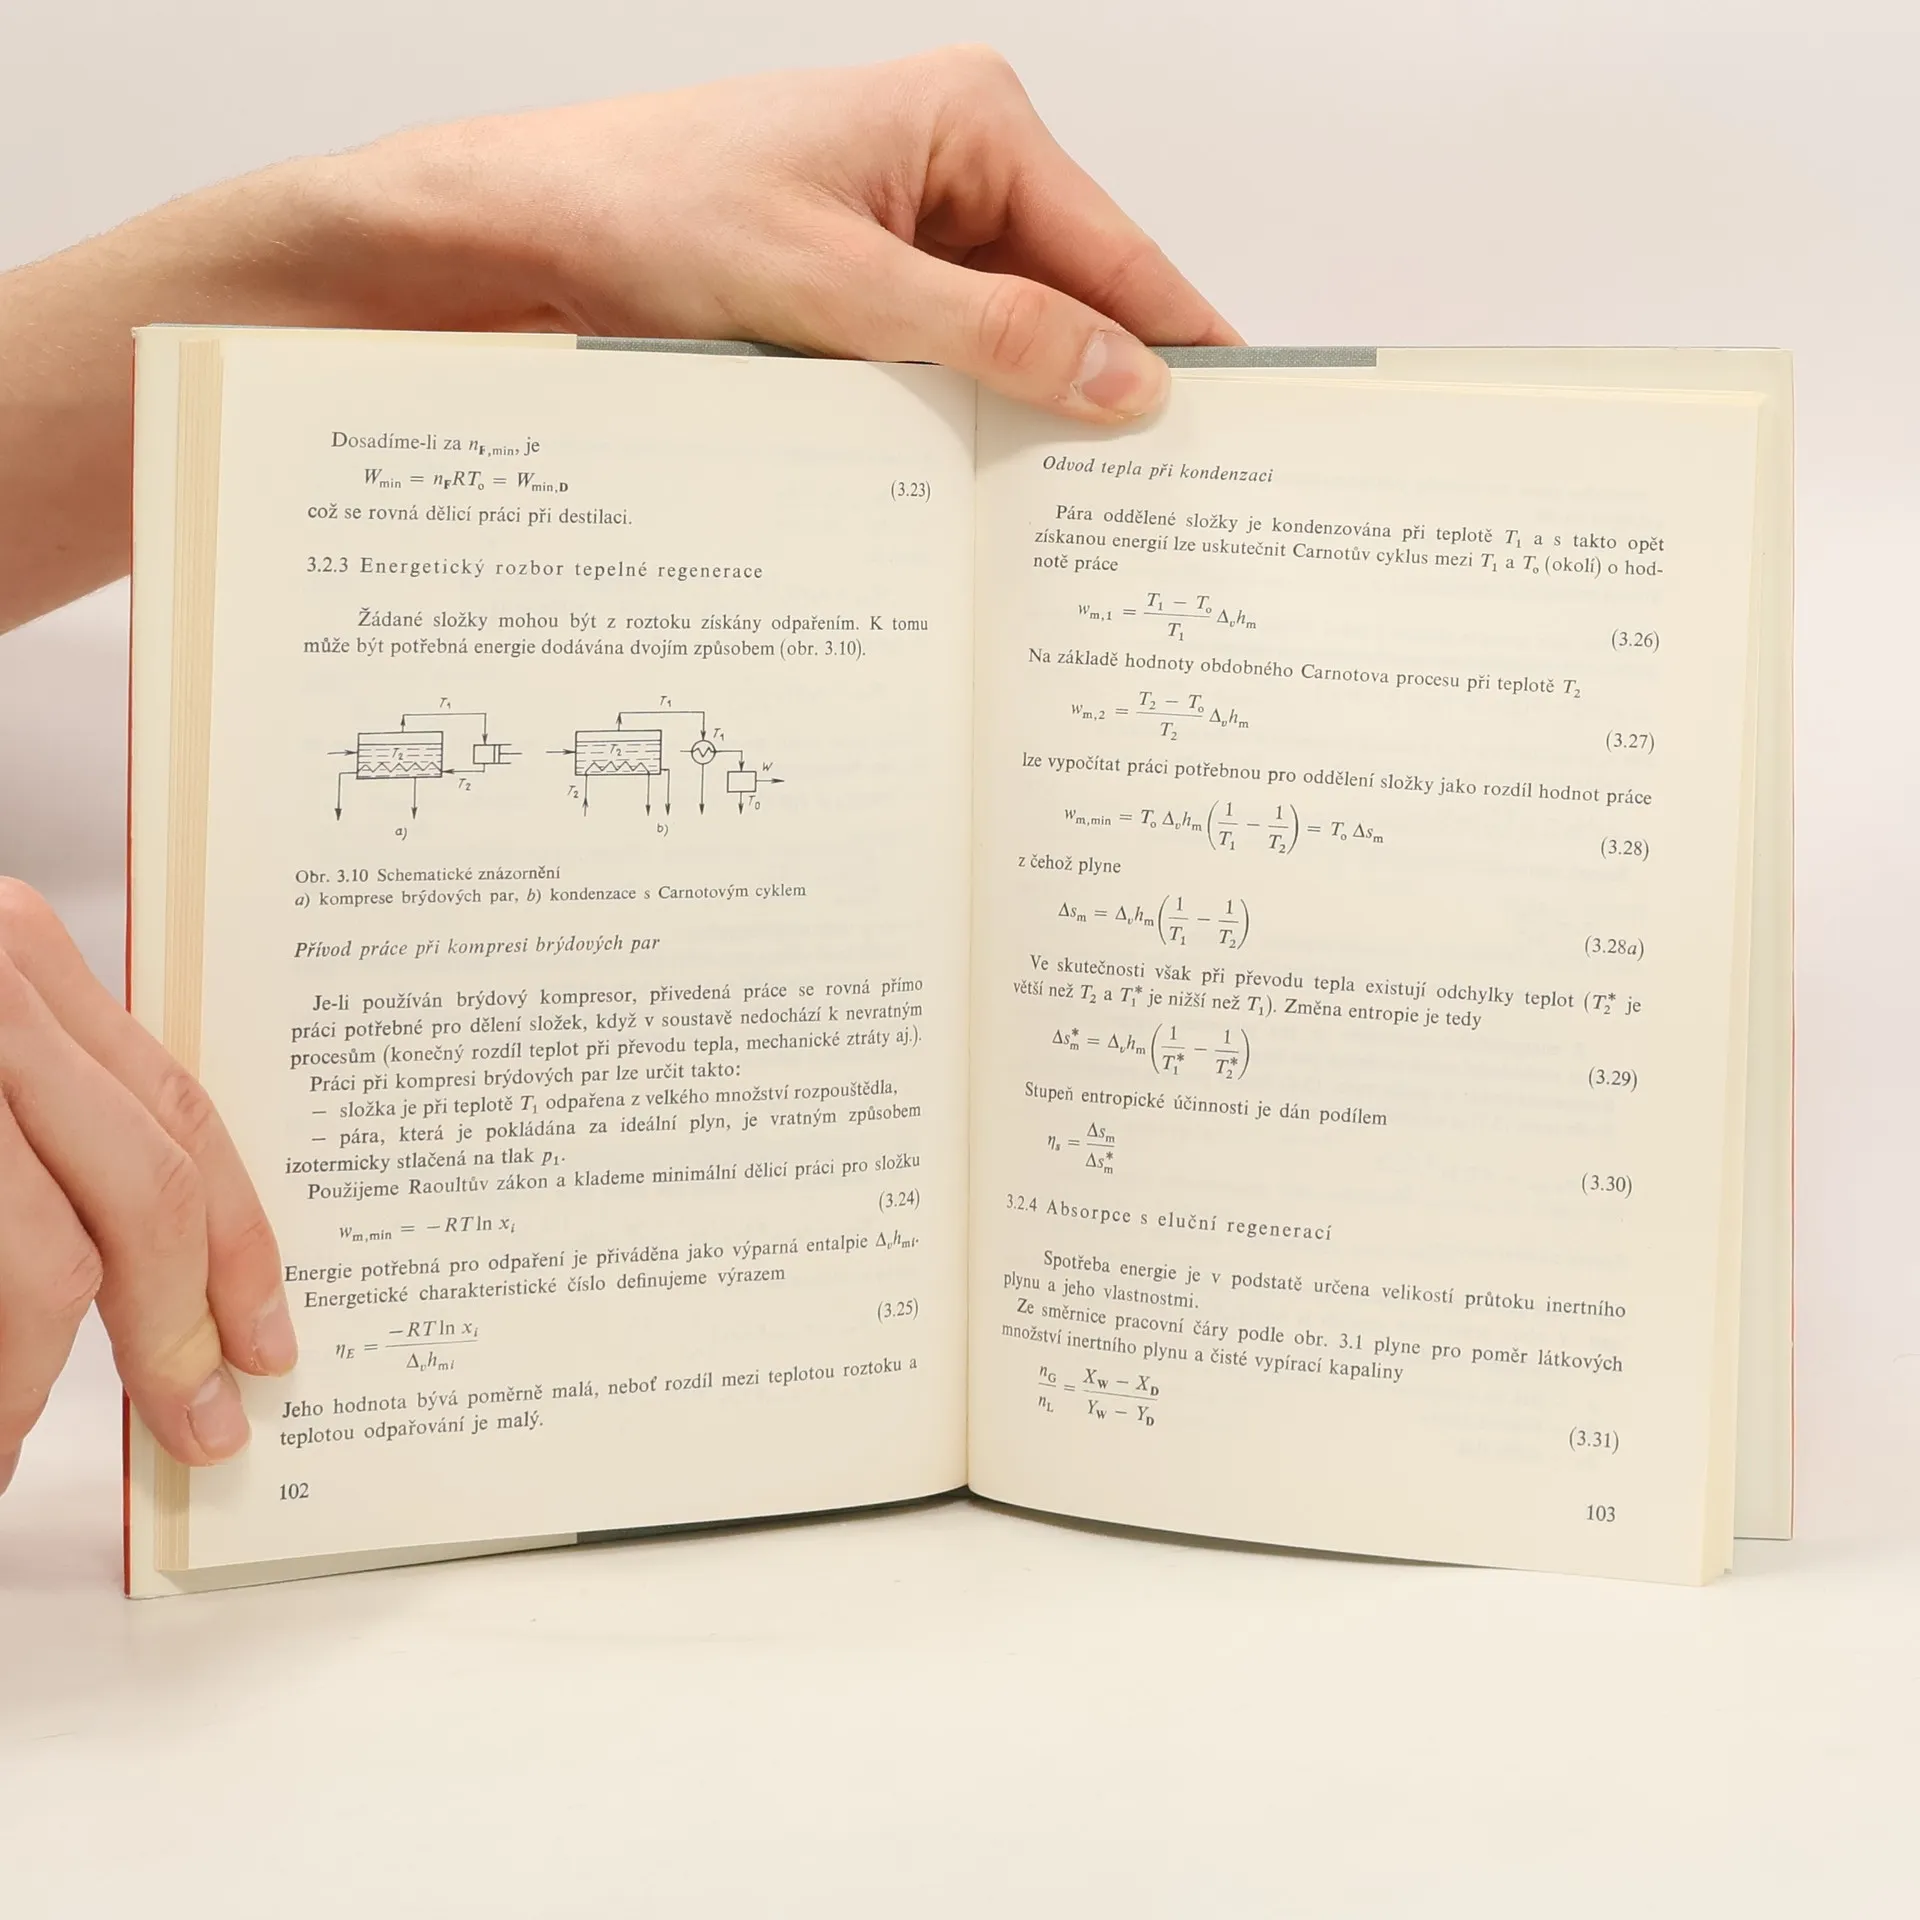 Dosadíme-li za n_F,min, je
W_min = n_F RT_o = W_min,D (3.23)
což se rovná dělicí práci při destilaci.
3.2.3 Energetický rozbor tepelné regenerace
Žádané složky mohou být z roztoku získány odpařením. K tomu
může být potřebná energie dodávána dvojím způsobem (obr. 3.10).
T₁ T₂ T₂ a)
T₁ T₂ T₂ T₁ W T₀ b)
Obr. 3.10 Schematické znázornění
a) komprese brýdových par, b) kondenzace s Carnotovým cyklem
Přívod práce při kompresi brýdových par
Je-li používán brýdový kompresor, přivedená práce se rovná přímo
práci potřebné pro dělení složek, když v soustavě nedochází k nevratným
procesům (konečný rozdíl teplot při převodu tepla, mechanické ztráty aj.).
Práci při kompresi brýdových par lze určit takto:
— složka je při teplotě T₁ odpařena z velkého množství rozpouštědla,
— pára, která je pokládána za ideální plyn, je vratným způsobem
izotermicky stlačená na tlak p₁.
Použijeme Raoultův zákon a klademe minimální dělicí práci pro složku
w_m,min = −RT ln x_i (3.24)
Energie potřebná pro odpaření je přiváděna jako výparná entalpie Δ_v h_mi.
Energetické charakteristické číslo definujeme výrazem
η_E = −RT ln x_i / Δ_v h_mi (3.25)
Jeho hodnota bývá poměrně malá, neboť rozdíl mezi teplotou roztoku a
teplotou odpařování je malý.
102
Odvod tepla při kondenzaci
Pára oddělené složky je kondenzována při teplotě T₁ a s takto opět
získanou energií lze uskutečnit Carnotův cyklus mezi T₁ a T_o (okolí) o hod-
notě práce
w_m,1 = (T₁ − T_o) / T₁ Δ_v h_m (3.26)
Na základě hodnoty obdobného Carnotova procesu při teplotě T₂
w_m,2 = (T₂ − T_o) / T₂ Δ_v h_m (3.27)
lze vypočítat práci potřebnou pro oddělení složky jako rozdíl hodnot práce
w_m,min = T_o Δ_v h_m (1/T₁ − 1/T₂) = T_o Δs_m (3.28)
z čehož plyne
Δs_m = Δ_v h_m (1/T₁ − 1/T₂) (3.28a)
Ve skutečnosti však při převodu tepla existují odchylky teplot (T₂* je
větší než T₂ a T₁* je nižší než T₁). Změna entropie je tedy
Δs_m* = Δ_v h_m (1/T₁* − 1/T₂*) (3.29)
Stupeň entropické účinnosti je dán podílem
η_s = Δs_m / Δs_m* (3.30)
3.2.4 Absorpce s eluční regenerací
Spotřeba energie je v podstatě určena velikostí průtoku inertního
plynu a jeho vlastnostmi.
Ze směrnice pracovní čáry podle obr. 3.1 plyne pro poměr látkových
množství inertního plynu a čisté vypírací kapaliny
n_G / n_L = (X_W − X_D) / (Y_W − Y_D) (3.31)
103